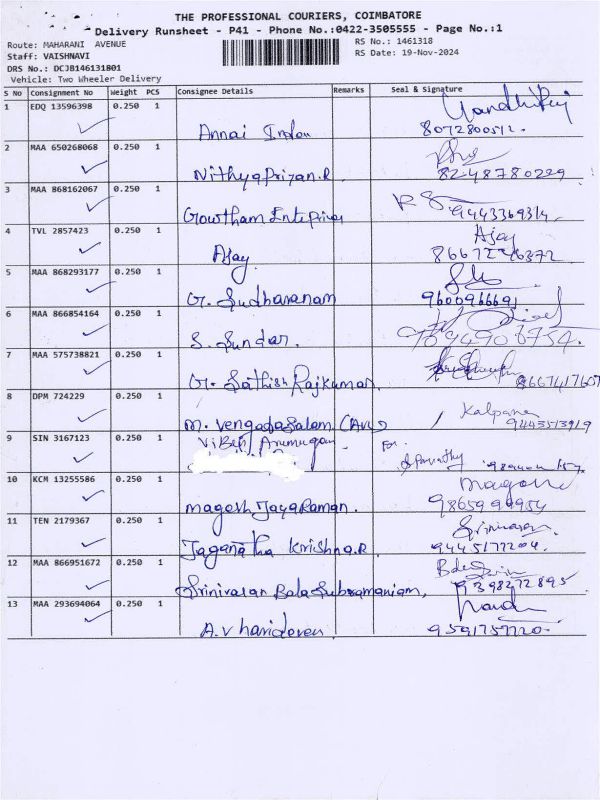 THE PROFESSIONAL COURIERS, COIMBATORE
Delivery Runsheet - P41 - Phone No.:0422-3505555 - Page No.:1
Route: MAHARANI AVENUE RS No.: 1461318
Staff: VAISHNAVI RS Date: 19-Nov-2024
DRS No.: DCJB146131801
Vehicle: Two Wheeler Delivery
S No Consignment No Weight PCS Consignee Details Remarks Seal & Signature
1 EDQ 13596398 0.250 1
Annai 8072800512.
2 MAA 650268068 0.250 1
Nithyapriyan.R 8248780229
3 MAA 868162067 0.250 1
Gowtham Enteprises 9443369314.
4 TVL 2857423 0.250 1 Ajay
Ajay.
5 MAA 868293177 0.250 1
G. Sudharanam 9600966691
6 MAA 866854164 0.250 1
S. Sundar.
7 MAA 575738821 0.250 1
G. Sathish Rajkumar. 8667417607
8 DPM 724229 0.250 1 Kalpana
M. Vengadasalam 9443513919
9 SIN 3167123 0.250 1 Arumugam For
10 KCM 13255586 0.250 1
Magesh Jayaraman. 9865999954
11 TEN 2179367 0.250 1 Srinivasan
Jaganatha Krishna.R 9445177204.
12 MAA 866951672 0.250 1 Bala
Srinivasan Bala Subramaniam, 9398372895
13 MAA 293694064 0.250 1
A.V 9591757720.